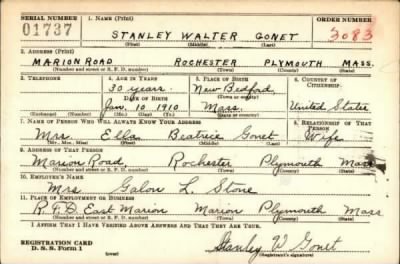 SERIAL NUMBER 1. NAME (Print) ORDER NUMBER
01737 STANLEY WALTER GONET 3083
(First) (Middle) (Last)
2. ADDRESS (Print)
MARION ROAD ROCHESTER PLYMOUTH MASS.
(Number and street or R. F. D. number) (Town) (County) (State)
3. TELEPHONE 4. AGE IN YEARS 5. PLACE OF BIRTH 6. COUNTRY OF CITIZENSHIP
30 years. New Bedford
DATE OF BIRTH (Town or county)
Jan. 10 1910 Mass. United States
(Exchange) (No.) (Mo.) (Day) (Yr.) (State or country)
7. NAME OF PERSON WHO WILL ALWAYS KNOW YOUR ADDRESS 8. RELATIONSHIP OF THAT PERSON
Mrs. Ella Beatrice Gonet Wife
(Mr., Mrs., Miss) (First) (Middle) (Last)
9. ADDRESS OF THAT PERSON
Marion Road, Rochester Plymouth Mass
(Number and street or R. F. D. number) (Town) (County) (State)
10. EMPLOYER'S NAME
Mrs Galon L. Stone
11. PLACE OF EMPLOYMENT OR BUSINESS
R.F.D East Marion Marion Plymouth Mass
(Number and street or R. F. D. number) (Town) (County) (State)
I AFFIRM THAT I HAVE VERIFIED ABOVE ANSWERS AND THAT THEY ARE TRUE.
REGISTRATION CARD
D. S. S. Form 1 (over) Stanley W Gonet
(Registrant's signature)